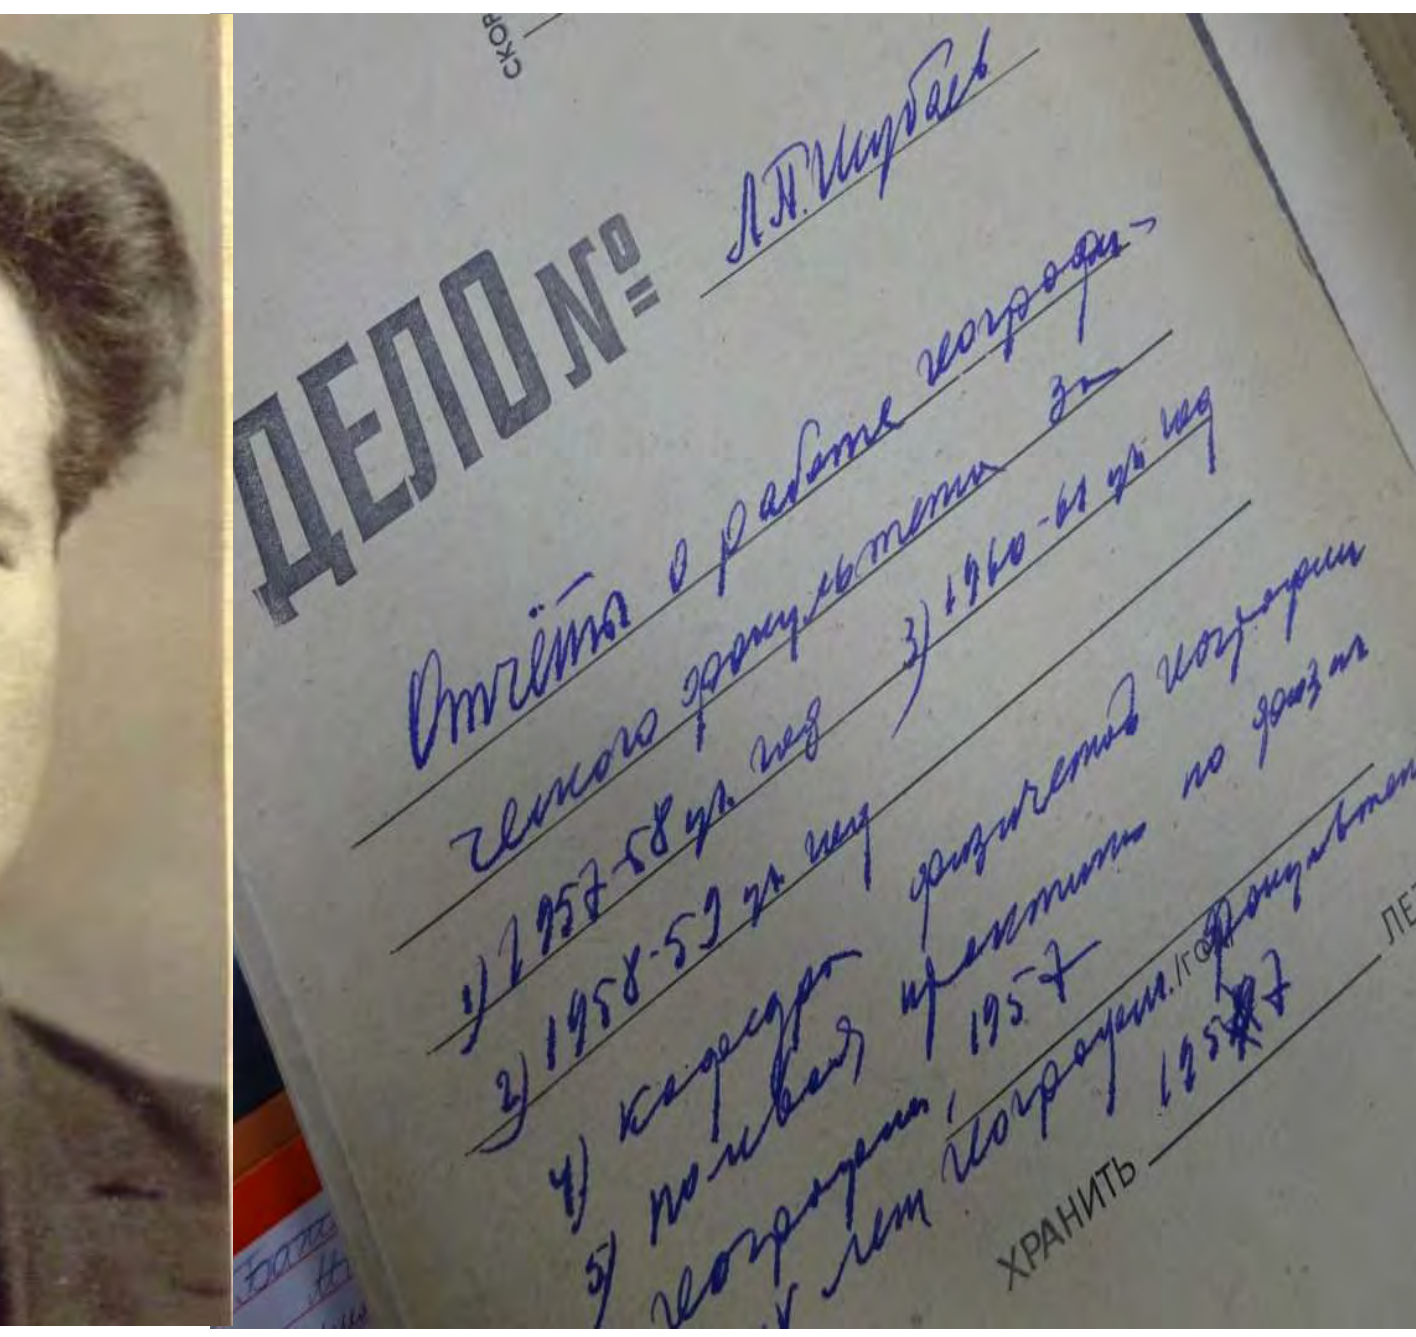 СКОР
Л.П. Шубаев
ДЕЛО №
Отчёты о работе географи-
ческого факультета за
1) 1957-58 уч. год 3) 1960-61 уч. год
2) 1958-59 уч. год
4) кафедры физической географии
5) полевая практика по физич.
географии, 1957
лет географич. факультет
1957
/ГО
ХРАНИТЬ ЛЕТ